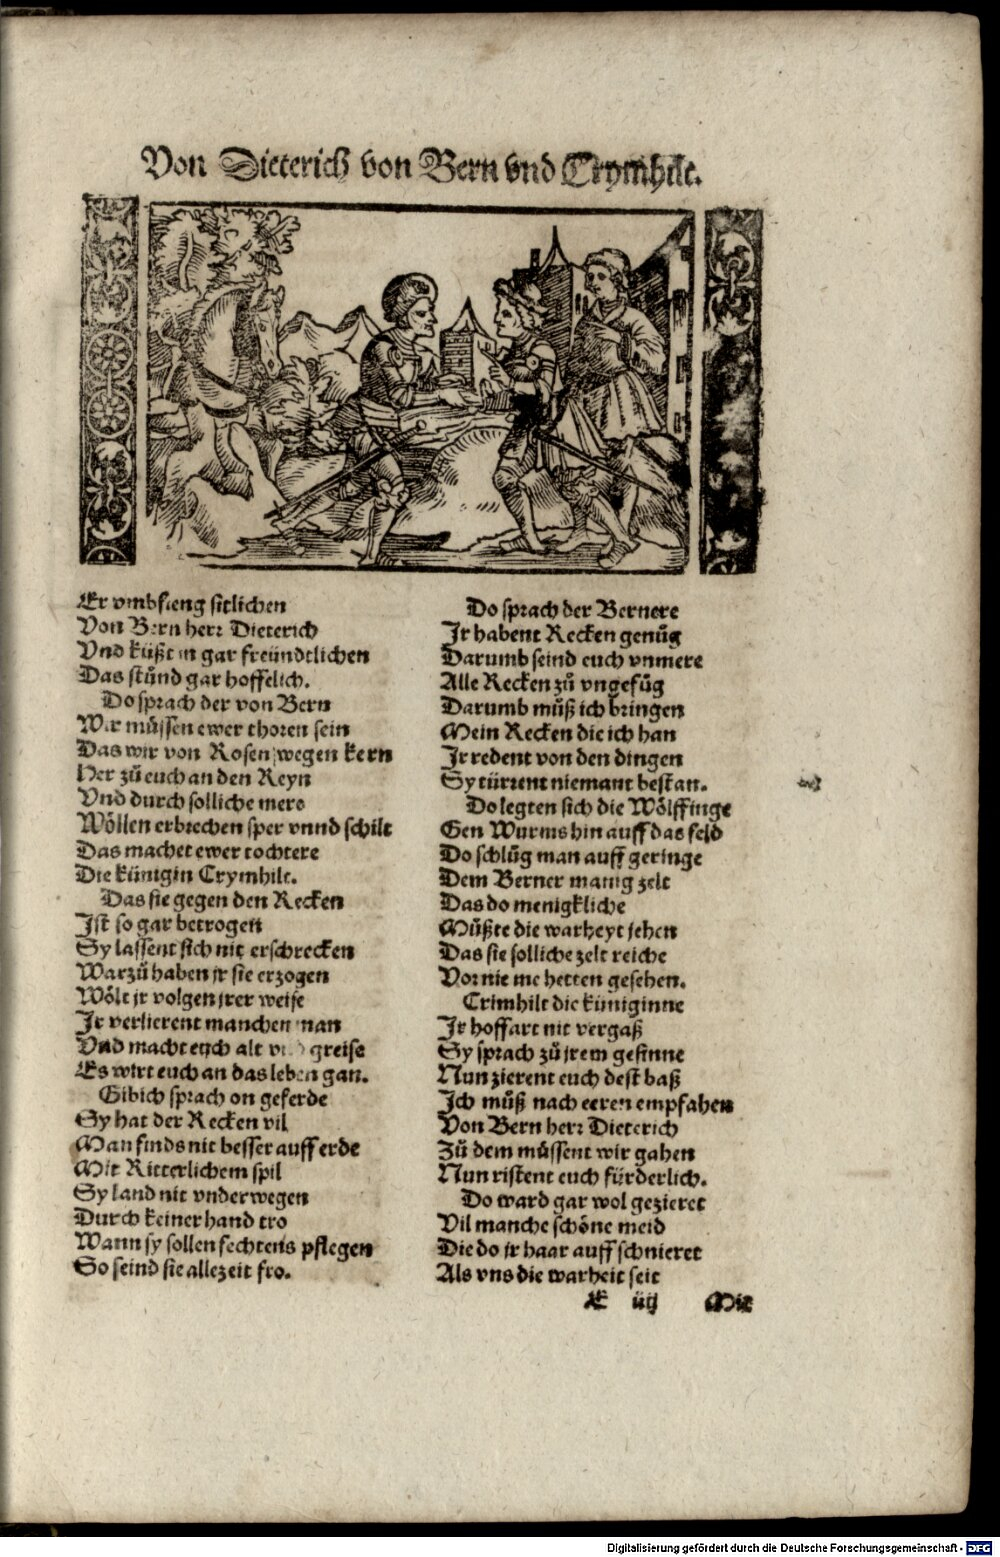 Von Dieterich von Bern vnd Crymhilt.
Er vmbfieng sitlichen
Von Bern herr Dieterich
Vnd küßt in gar freündtlichen
Das stůnd gar hoffelich.
Do sprach der von Bern
Wir müssen ewer thoren sein
Das wir von Rosen wegen kern
Her zů euch an den Reyn
Vnd durch solliche mere
Wöllen erbrechen sper vnnd schilt
Das machet ewer tochtere
Die künigin Crymhilt.
Das sie gegen den Recken
Ist so gar betrogen
Sy lassent sich nit erschrecken
Warzů haben jr sie erzogen
Wölt jr volgen jrer weise
Ir verlierent manchen man
Vnd macht euch alt greise
Es wirt euch an das leben gan.
Gibich sprach on geferde
Sy hat der Recken vil
Man finds nit besser auff erde
Mit Ritterlichem spil
Sy land nit vnderwegen
Durch keiner hand tro
Wann sy sollen fechtens pflegen
So seind sie allezeit fro.
Do sprach der Bernere
Ir habent Recken genůg
Darumb seind euch vnmere
Alle Recken zů vngefůg
Darumb můß ich bringen
Mein Recken die ich han
Ir redent von den dingen
Sy türrent niemant bestan.
Do legten sich die Wölffinge
Gen Wurms hin auff das feld
Do schlůg man auff geringe
Dem Berner manig zelt
Das do menigkliche
Můßte die warheyt jehen
Das sie solliche zelt reiche
Vor nie me hetten gesehen.
Crimhilt die küniginne
Ir hoffart nit vergaß
Sy sprach zů jrem gesinne
Nun zierent euch dest baß
Ich můß nach eeren empfahen
Von Bern herr Dieterich
Zů dem müssent wir gahen
Nun ristent euch fürderlich.
Do ward gar wol gezieret
Vil manche schöne meid
Die do jr haar auff schnieret
Als vns die warheit seit
E iiij Mit
Digitalisierung gefördert durch die Deutsche Forschungsgemeinschaft - DFG